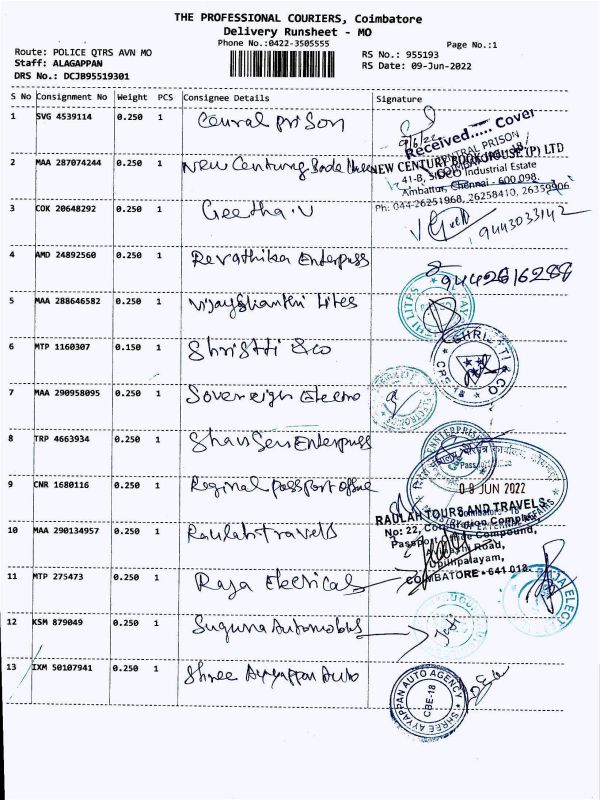 THE PROFESSIONAL COURIERS, Coimbatore
Delivery Runsheet - MO
Phone No.:0422-3505555
Page No.:1
Route: POLICE QTRS AVN MO
Staff: ALAGAPPAN
DRS No.: DCJB95519301
RS No.: 955193
RS Date: 09-Jun-2022
S No Consignment No Weight PCS Consignee Details Signature
1 SVG 4539114 0.250 1 Central prison
9/6/22
Received..... Cover
CENTRAL PRISON
2 MAA 287074244 0.250 1 New Century Book House
NEW CENTURY BOOK HOUSE (P) LTD
41-B, SIDCO Industrial Estate
Ambattur, Chennai - 600 098.
Ph: 044-26251968, 26258410, 26359906
3 COK 20648292 0.250 1 Geetha.V
9443033142
4 AMD 24892560 0.250 1 Revathika Enterprises
9442616288
5 MAA 288646582 0.250 1 Vijayshanthi Lites
6 MTP 1160307 0.150 1 Shristti & co
SHRISTTI & CO
CBE-18
7 MAA 290958095 0.250 1 Sovereign Electro
8 TRP 4663934 0.250 1 Enterprises
ENTERPRISES
9 CNR 1680116 0.250 1 Regional passport office
09 JUN 2022
10 MAA 290134957 0.250 1 Raulah travels
RAULAH TOURS AND TRAVELS
No: 22, Corporation Complex,
Passport Office Compound,
Avinashi Road,
Uppilipalayam,
COIMBATORE - 641 018.
11 MTP 275473 0.250 1 Raja Electricals
RAJA ELECT
12 KSM 879049 0.250 1 Suguna Automobiles
13 IXM 50107941 0.250 1 Shree Ayyappan Auto
SHREE AYYAPPAN AUTO AGENCY
CBE-18